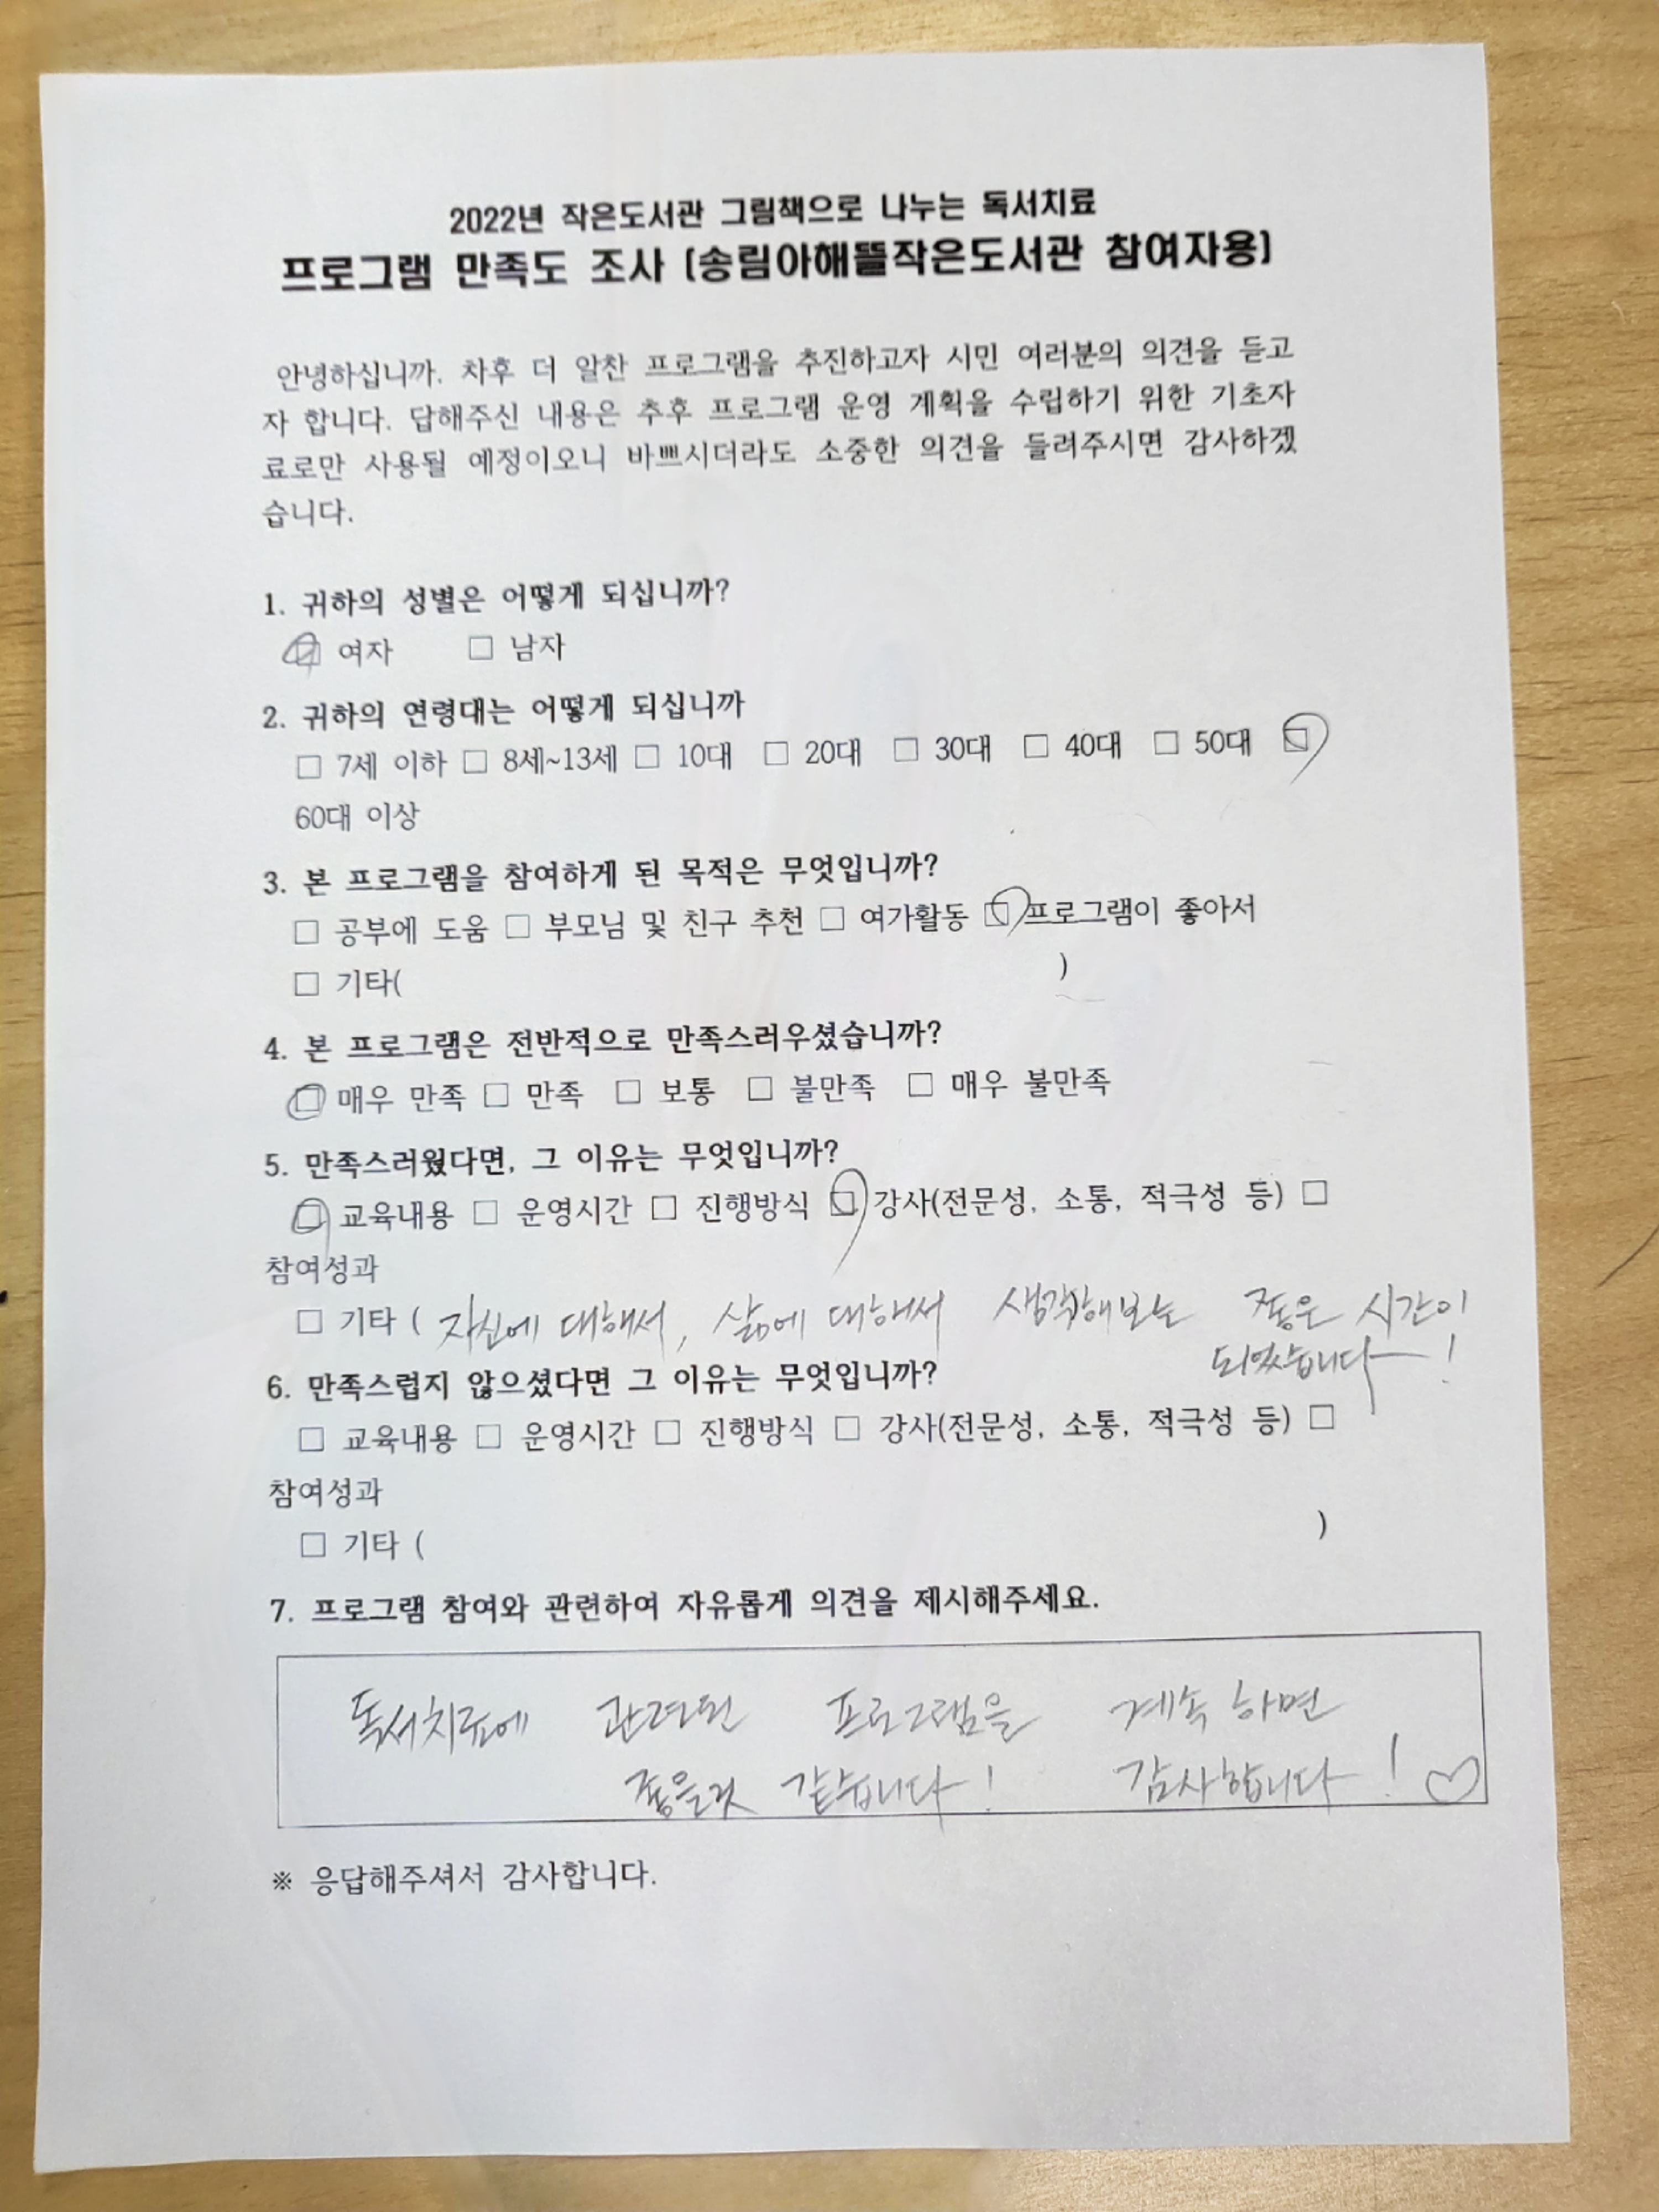 2022년 작은도서관 그림책으로 나누는 독서치료
프로그램 만족도 조사 (송림아해뜰작은도서관 참여자용)
안녕하십니까. 차후 더 알찬 프로그램을 추진하고자 시민 여러분의 의견을 듣고
자 합니다. 답해주신 내용은 추후 프로그램 운영 계획을 수립하기 위한 기초자
료로만 사용될 예정이오니 바쁘시더라도 소중한 의견을 들려주시면 감사하겠
습니다.
1. 귀하의 성별은 어떻게 되십니까?
□ 여자 □ 남자
2. 귀하의 연령대는 어떻게 되십니까
□ 7세 이하 □ 8세~13세 □ 10대 □ 20대 □ 30대 □ 40대 □ 50대 □
60대 이상
3. 본 프로그램을 참여하게 된 목적은 무엇입니까?
□ 공부에 도움 □ 부모님 및 친구 추천 □ 여가활동 □ 프로그램이 좋아서
□ 기타( )
4. 본 프로그램은 전반적으로 만족스러우셨습니까?
□ 매우 만족 □ 만족 □ 보통 □ 불만족 □ 매우 불만족
5. 만족스러웠다면, 그 이유는 무엇입니까?
□ 교육내용 □ 운영시간 □ 진행방식 □ 강사(전문성, 소통, 적극성 등) □
참여성과
□ 기타 ( 자신에 대해서, 삶에 대해서 생각해보는 좋은 시간이
되었습니다!
6. 만족스럽지 않으셨다면 그 이유는 무엇입니까?
□ 교육내용 □ 운영시간 □ 진행방식 □ 강사(전문성, 소통, 적극성 등) □
참여성과
□ 기타 ( )
7. 프로그램 참여와 관련하여 자유롭게 의견을 제시해주세요.
독서치료에 관련된 프로그램을 계속 하면
좋을것 같습니다! 감사합니다! ♡
※ 응답해주셔서 감사합니다.